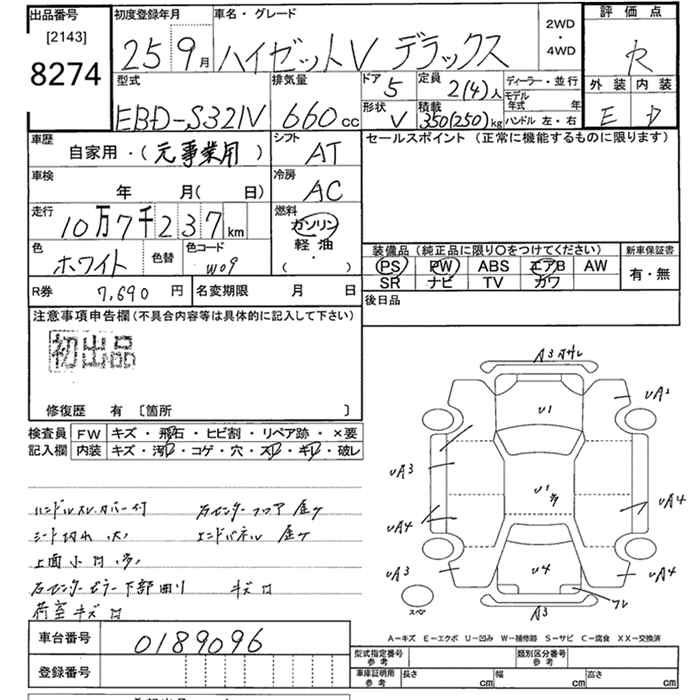 出品番号 [2143] 8274
初度登録年月 25年9月
車名・グレード ハイゼットV デラックス
2WD・4WD
評価点 R
外装 E 内装 D
型式 EBD-S321V
排気量 660cc
ドア 5 定員 2(4)人
形状 V 積載 350(250)kg
ディーラー・並行
モデル年式 年
ハンドル 左・右
車歴 自家用・(元事業用)
シフト AT
セールスポイント (正常に機能するものに限ります)
車検 年 月( 日)
冷房 AC
走行 10万7千237km
燃料 ガソリン 軽油・( )
色 ホワイト 色替 色コード W09
装備品 (純正品に限り○をつけてください)
新車保証書
PS PW ABS エアB AW
SR ナビ TV カワ
有・無
R券 7,690円 名変期限 月 日
後日品
注意事項申告欄 (不具合内容等は具体的に記入して下さい)
初出品
修復歴 有 [箇所 ]
検査員記入欄
FW キズ・飛石・ヒビ割・リペア跡・×要
内装 キズ・汚れ・コゲ・穴・スレ・キレ・破レ
ハンドルスレ カバー付 右センターフロア 金ケ
シート切れ 大 エンドパネル 金ケ
上面小凹 多
右センターピラー下部曲り キズ凹
荷室キズ凹
A3
UA2
U1
UA3
U1 多
UA4
UA4
UA3
U4
UA4
スペア
A3
ワレ
A－キズ E－エクボ U－凹み W－補修跡 S－サビ C－腐食 XX－交換済
車台番号 0189096
登録番号
型式指定番号 参考 類別区分番号 参考
車庫証明用 参考 長さ cm 幅 cm 高さ cm